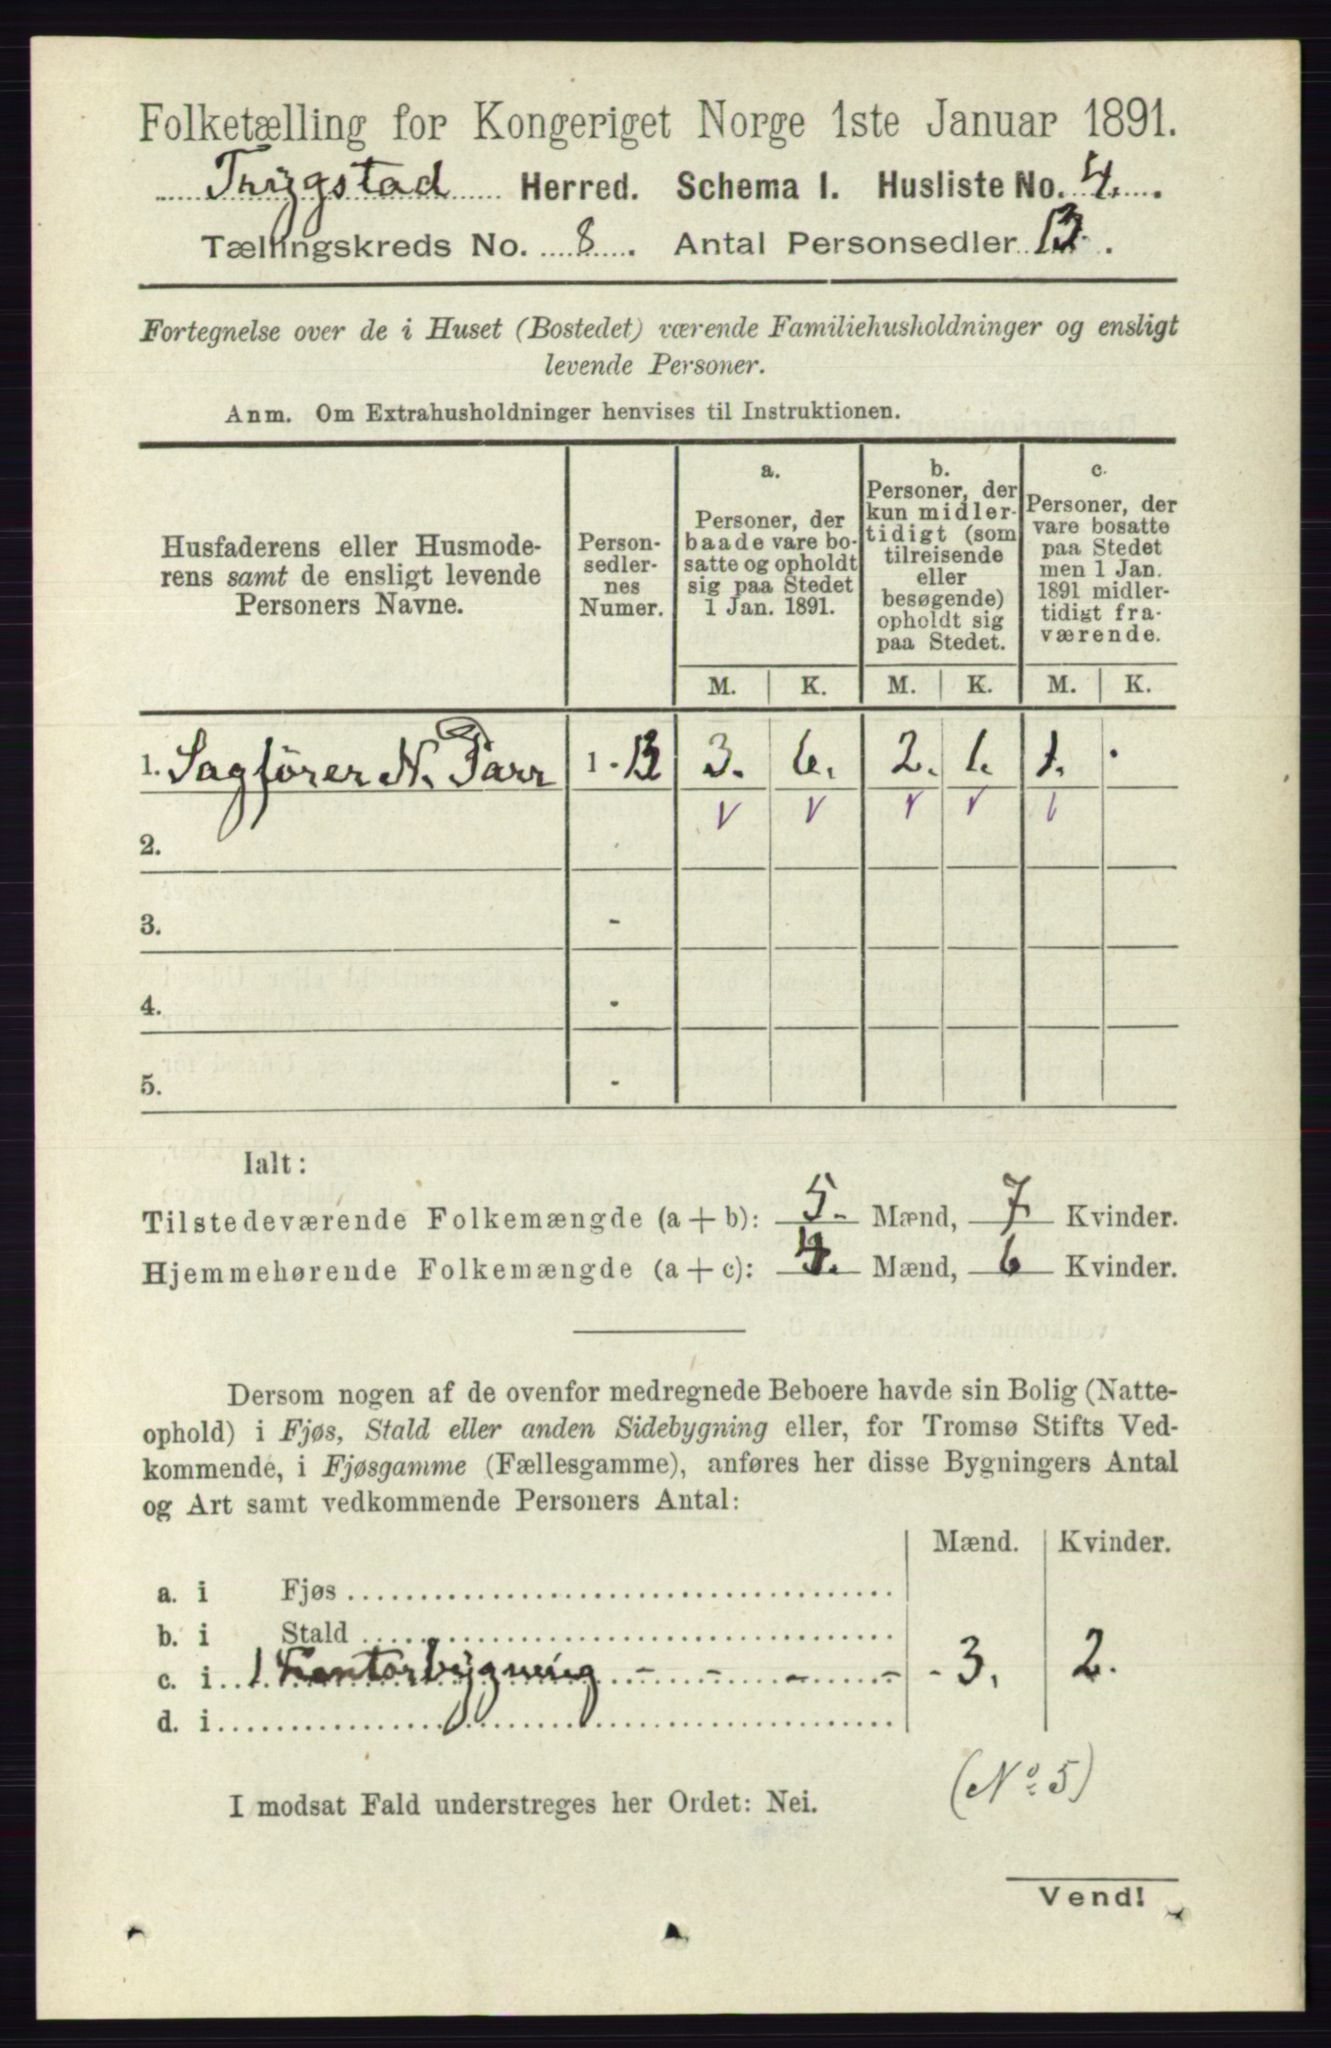 Folketælling for Kongeriget Norge 1ste Januar 1891.
Trygstad Herred. Schema I. Husliste No. 4.
Tællingskreds No. 8. Antal Personsedler 13.
Fortegnelse over de i Huset (Bostedet) værende Familiehusholdninger og ensligt
levende Personer.
Anm. Om Extrahusholdninger henvises til Instruktionen.
Husfaderens eller Husmode-
rens samt de ensligt levende
Personers Navne.
Person-
sedler-
nes
Numer.
a.
Personer, der
baade vare bo-
satte og opholdt
sig paa Stedet
1 Jan. 1891.
b.
Personer, der
kun midler-
tidigt (som
tilreisende
eller
besøgende)
opholdt sig
paa Stedet.
c.
Personer, der
vare bosatte
paa Stedet
men 1 Jan.
1891 midler-
tidigt fra-
værende.
M. K. M. K. M. K.
1. Sagfører N. Parr 1 - 13 3. 6. 2. 1. 1. .
2.
3. -
4. -
5. -
Ialt:
Tilstedeværende Folkemængde (a + b): 5. Mænd, 7. Kvinder.
Hjemmehørende Folkemængde (a + c): 4. Mænd, 6 Kvinder.
Dersom nogen af de ovenfor medregnede Beboere havde sin Bolig (Natte-
ophold) i Fjøs, Stald eller anden Sidebygning eller, for Tromsø Stifts Ved-
kommende, i Fjøsgamme (Fællesgamme), anføres her disse Bygningers Antal
og Art samt vedkommende Personers Antal:
Mænd. Kvinder.
a. i Fjøs
b. i Stald
c. i 1 Kontorbygning - - - - - 3. 2.
d. i
(No 5)
I modsat Fald understreges her Ordet: Nei.
Vend!